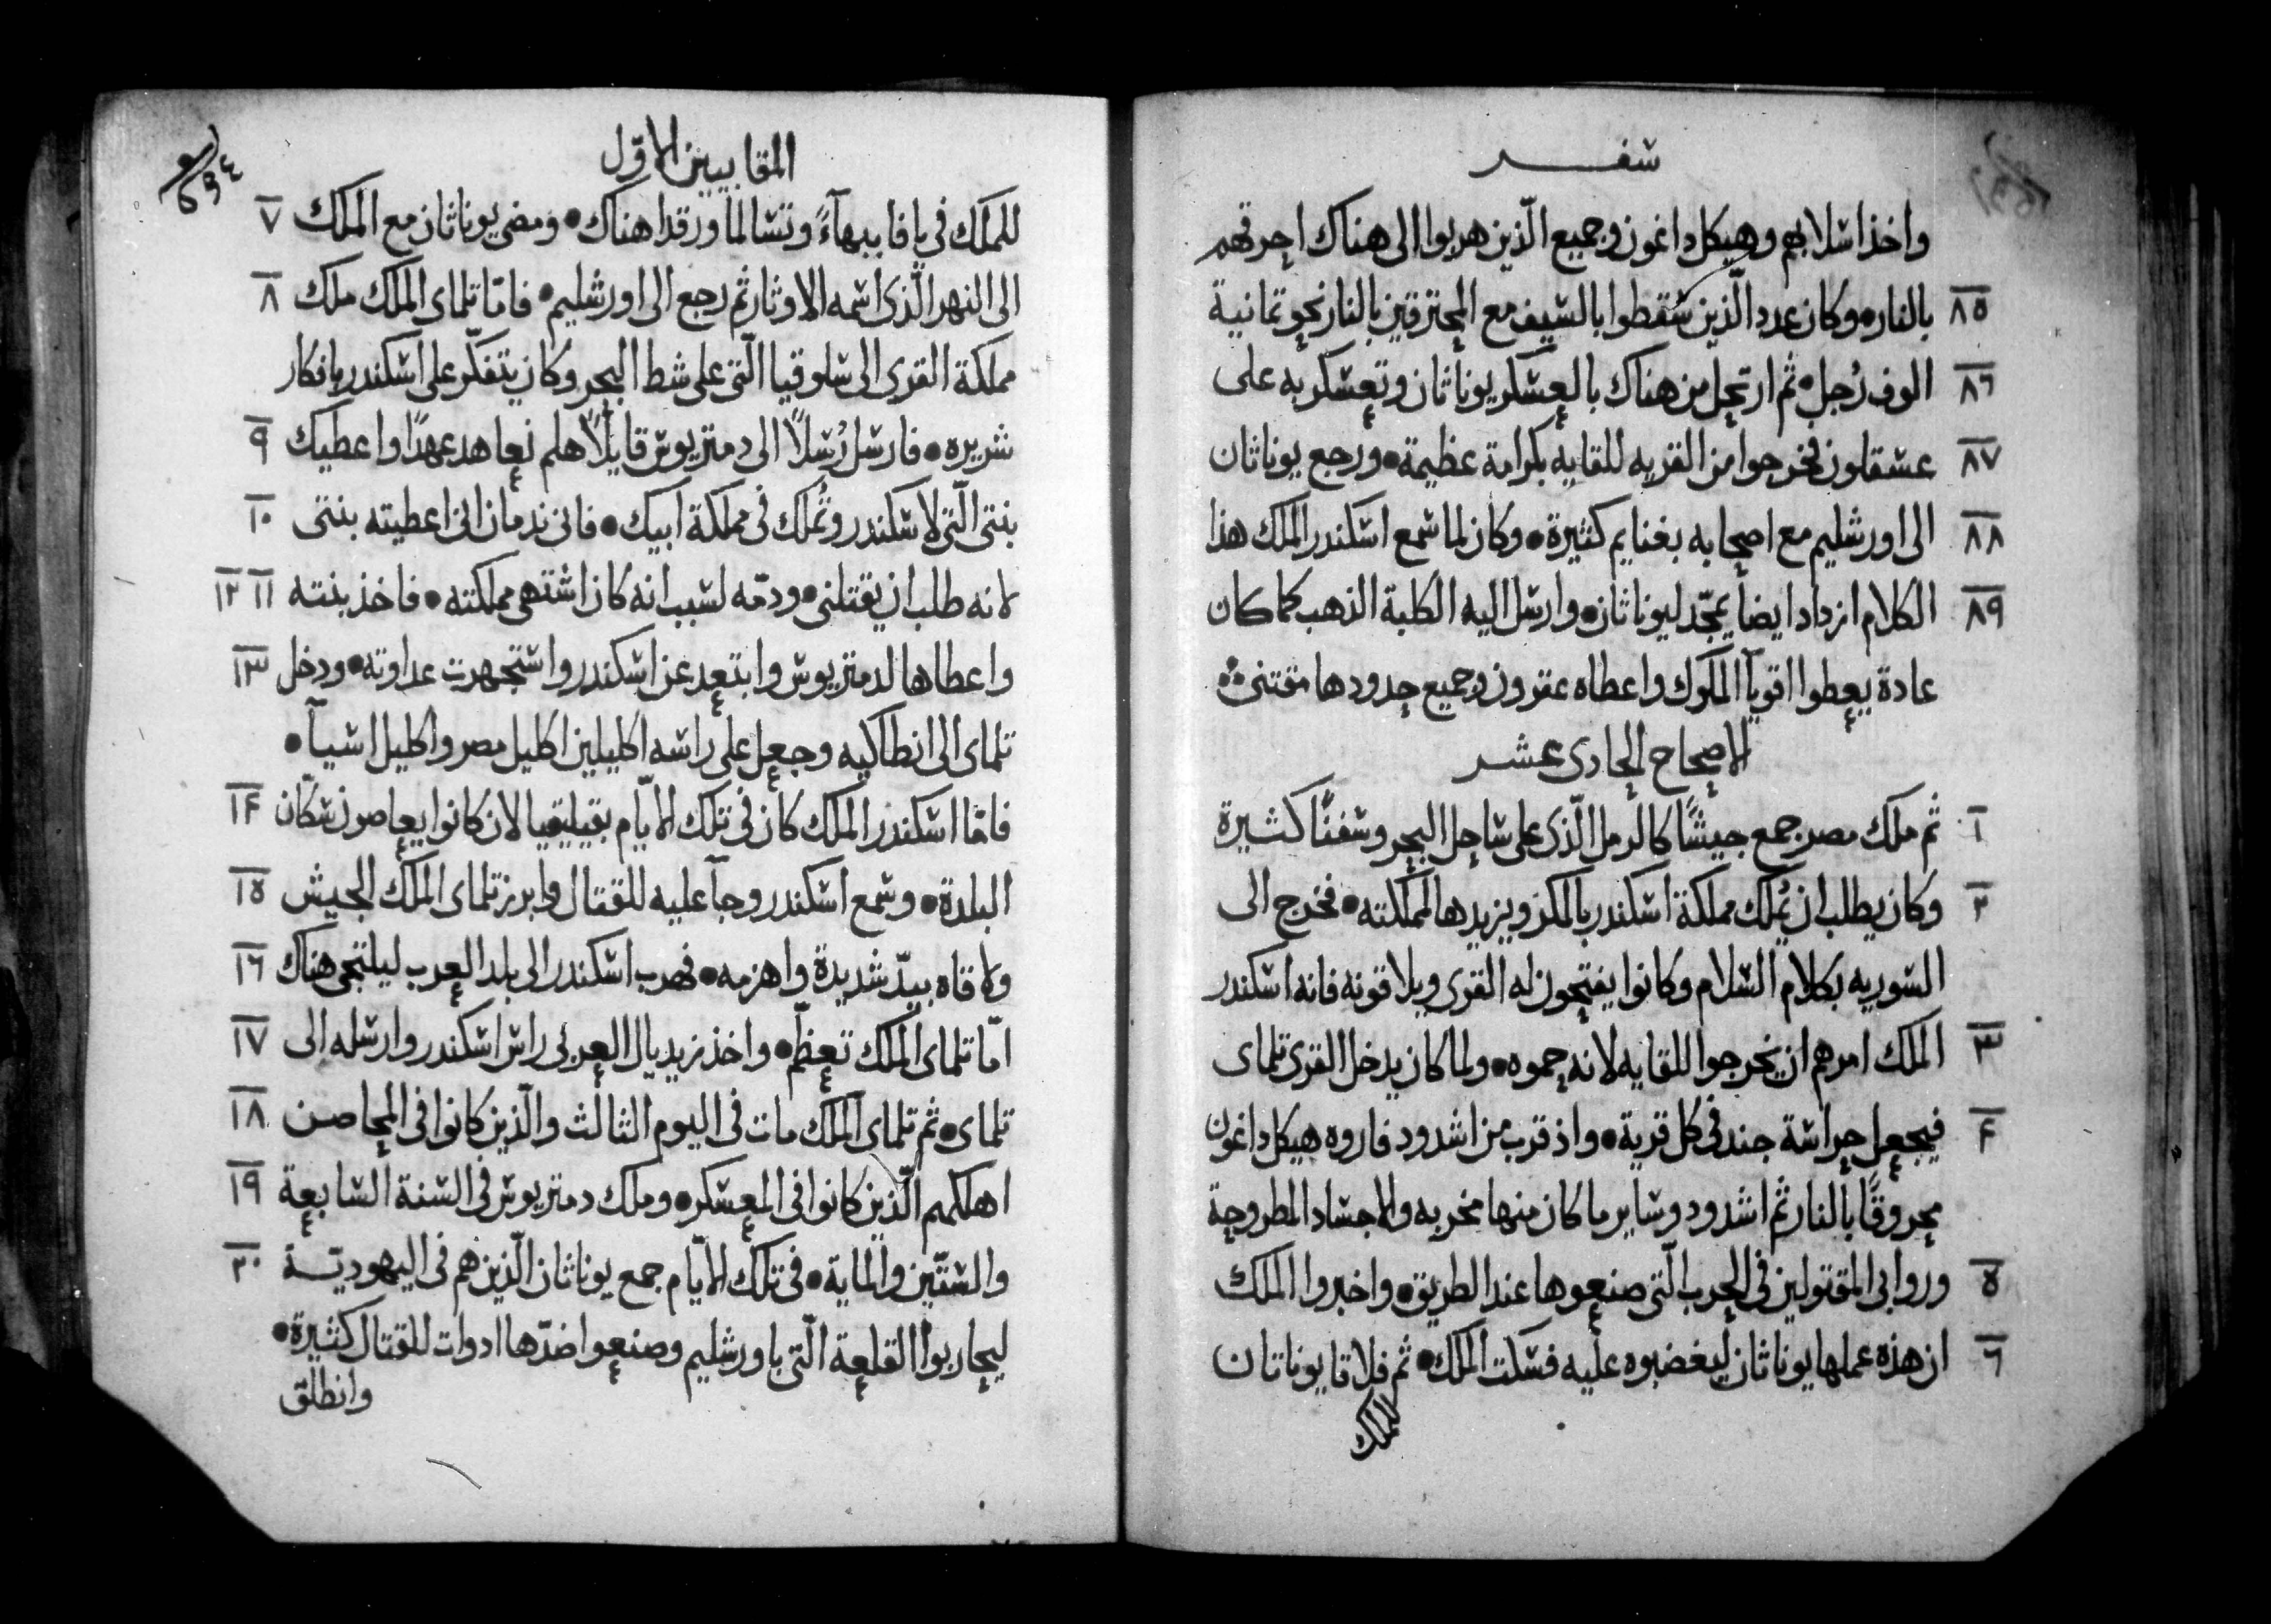 سفر
واخذ اسلابهم وهيكل داغون وجميع الّذين هربوا الى هناك احرقهم
٨٥ بالنار٠ وكان عدد الّذين سُقطوا بالسيف مع المحترقين بالنار نحو ثمانية
٨٦ الوف رُجل٠ ثم ارتحل من هناك بالعسكر يوناثان وتعسكر به على
٨٧ عسقلون فخرجوا من القريه للقايه بكرامة عظيمة٠ ورجع يوناثان
٨٨ الى اورشليم مع اصحابه بغنايم كثيرة٠ وكان لما سمع اسكندر الملك هذا
٨٩ الكلام ازداد ايضا يمجّد ليوناثان٠ وارسل اليه الكلبة الذهب كما كان
عادة يعطوا اقوياَ الملوك واعطاه عقرون وجميع حدودها مقتنى
الاصحاح الحادى عشر
١ ثم ملك مصر جمع جيشًا كالرمل الّذى على ساحل البحر وسفنًا كثيرة
٢ وكان يطلب ان يُملك مملكة اسكندر بالمكر ويزيدها لمملكته٠ فخرج الى
السوريه بكلام السلام وكانوا يفتحون له القرى ويلاقونه فانه اسكندر
٣ الملك امرهم ان يخرجوا للقايه لانه حموه٠ ولما كان يدخل القرى تلماى
٤ فيجعل حراسة جند فى كل قرية٠ واذ قرب من اشدود فاروه هيكل داغون
محروقًا بالنار ثم اشدود وساير ما كان منها مخربه والاجساد المطروحة
٥ وروابى المقتولين فى الحرب الّتى صنعوها عند الطريق٠ واخبروا الملك
٦ ان هذه عملها يوناثان ليغضبوه عليه فسكت الملك٠ ثم فلاقا يوناثان
للملك
المقابيين الاوّل
٦٩٤
للملك فى يافا ببهآءً وتسالما ورقدا هناك٠ ومضى يوناثان مع الملك ٧
الى النهر الّذى اسمه الاوثار ثم رجع الى اورشليم٠ فامّا تلماى الملك ملك ٨
مملكة القرى الى سلوقيا الّتى على شط البحر وكان يتفكّر على اسكندر بافكار
شريره٠ فارسل رُسلاً الى دمتريوس قايلاً هلم نعاهد عهدًا واعطيك ٩
بنتى الّتى لاسكندر وتُملك فى مملكة ابيك٠ فانى ندمان انى اعطيته بنتى ١٠
لانه طلب ان يقتلنى٠ ودمّه لسبب انه كان اشتهى مملكته٠ فاخذ بنته ١١ ١٢
واعطاها لدمتريوس وابتعد عن اسكندر واستجهرت عداوته٠ ودخل ١٣
تلماى الى انطاكيه وجعل على راسه اكليلين اكليل مصر واكليل اسيآ٠
فامّا اسكندر الملك كان فى تلك الايّام بقيليقيا لان كانوا يعاصون سكّان ١٤
البلدة٠ وسمع اسكندر وجآ عليه للقتال وابرز تلماى الملك الجيش ١٥
ولاقاه بيدّ شديدة واهزمه٠ فهرب اسكندر الى بلد العرب ليلتجى هناك ١٦
امّا تلماى الملك تعظّم٠ واخذ زبديال العربى راس اسكندر وارسله الى ١٧
تلماى٠ ثم تلماى الملك مات فى اليوم الثالث والّذين كانوا فى المحاصن ١٨
اهلكهم الّذين كانوا فى المعسكر٠ وملك دمتريوس فى السنة السابعة ١٩
والستّين والماية٠ فى تلك الايّام جمع يوناثان الّذين هم فى اليهوديّة ٢٠
ليحاربوا القلعة الّتى باورشليم وصنعوا ضدّها ادوات للقتال كثيرة٠
وانطلق